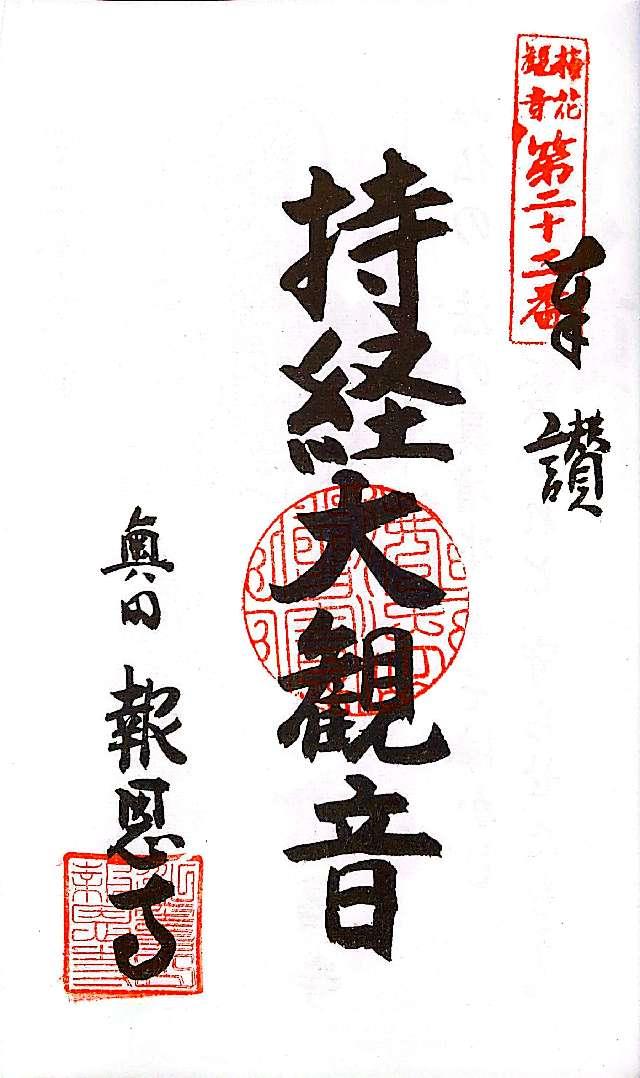 梅花
觀音
第二十二番
奉讃
持経大観音
奥田 報恩寺